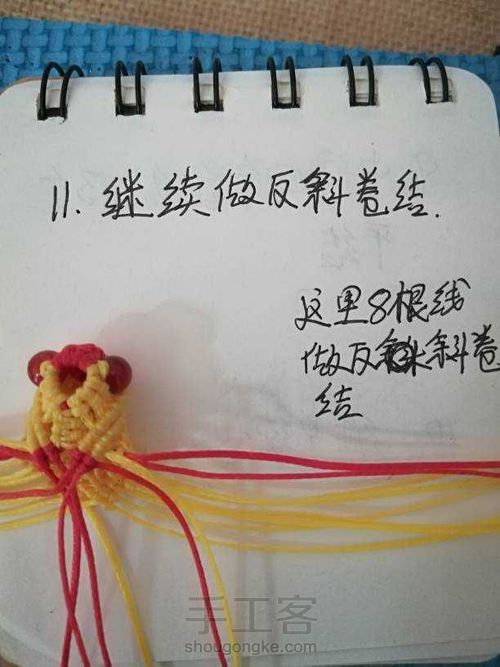 11. 继续做反斜卷结.
这里8根线
做反斜卷
结
手工客
shougongke.com